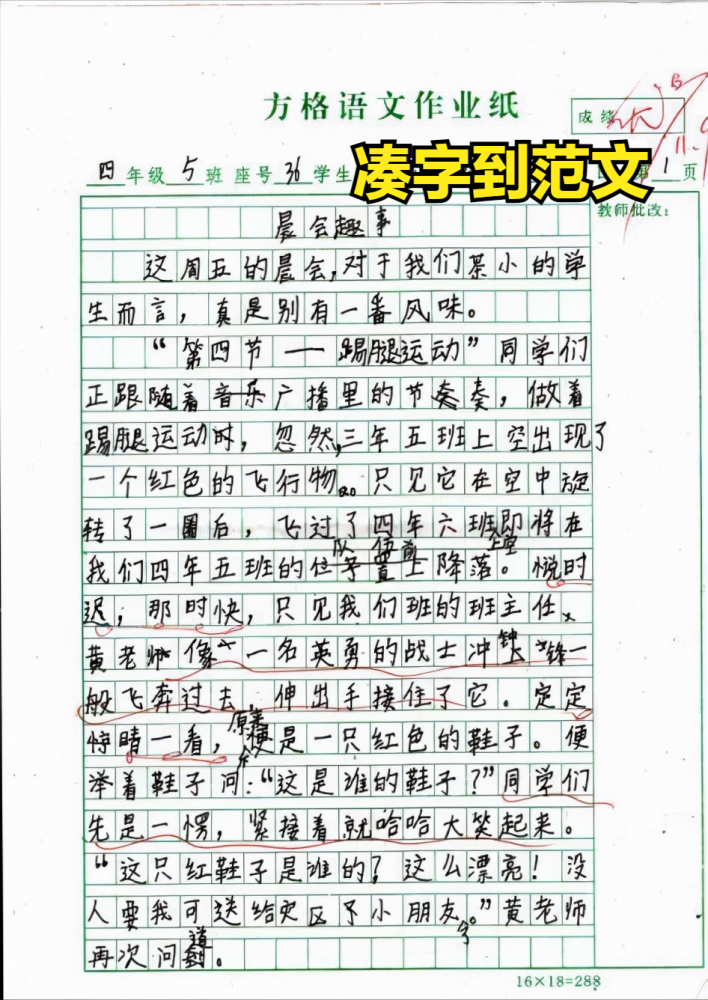 方格语文作业纸
成绩
四年级5班座号36学生
第1页
凑字到范文
教师批改：
晨会趣事
这周五的晨会，对于我们某小的学
生而言，真是别有一番风味。
“第四节——踢腿运动”同学们
正跟随着音乐广播里的节奏，做着
踢腿运动时，忽然，三年五班上空出现了
一个红色的飞行物。只见它在空中旋
转了一圈后，飞过了四年六班即将在
队伍前 上空
我们四年五班的位置上降落。悦时
迟，那时快，只见我们班的班主任
黄老师像一名英勇的战士冲锋一
般飞奔过去，伸出手接住了它。定定
原来
惊晴一看，是一只红色的鞋子。便
举着鞋子问：“这是谁的鞋子？”同学们
先是一愣，紧接着就哈哈大笑起来。
“这只红鞋子是谁的？这么漂亮！没
人要我可送给灾区下小朋友。”黄老师
道
再次问。
16×18=288